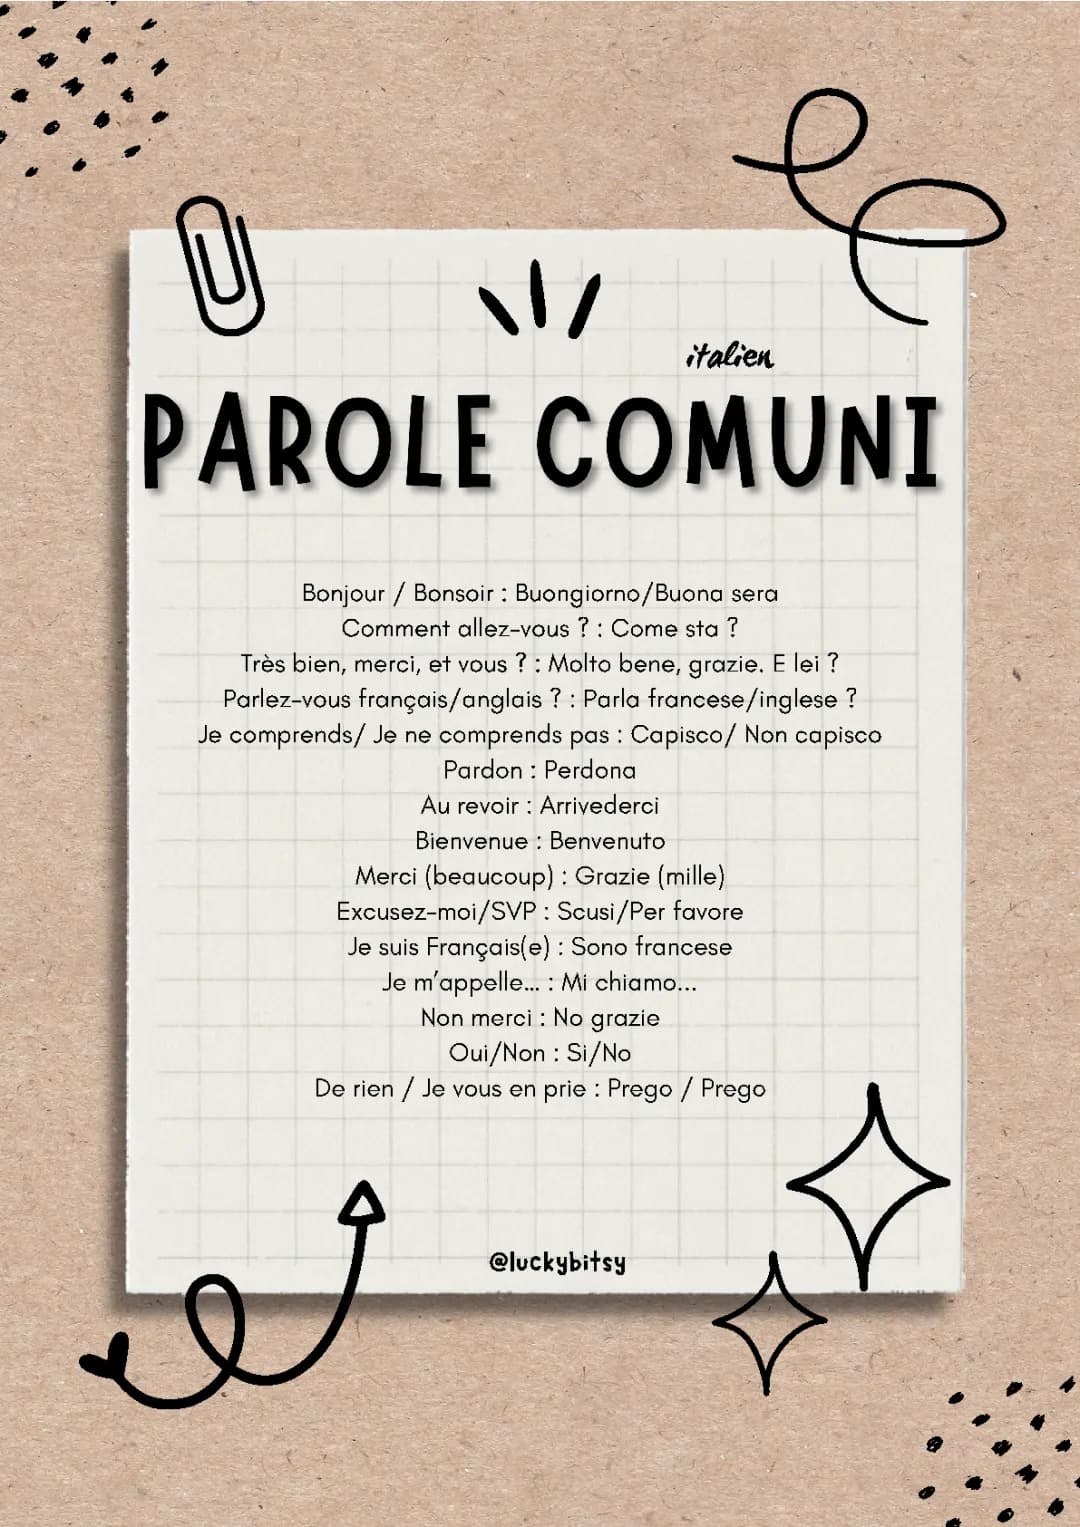 italien
PAROLE COMUNI
Bonjour / Bonsoir : Buongiorno/Buona sera
Comment allez-vous ? : Come sta ?
Très bien, merci, et vous ? : Molto bene, grazie. E lei ?
Parlez-vous français/anglais ? : Parla francese/inglese ?
Je comprends/ Je ne comprends pas : Capisco/ Non capisco
Pardon : Perdona
Au revoir : Arrivederci
Bienvenue : Benvenuto
Merci (beaucoup) : Grazie (mille)
Excusez-moi/SVP : Scusi/Per favore
Je suis Français(e) : Sono francese
Je m’appelle... : Mi chiamo...
Non merci : No grazie
Oui/Non : Si/No
De rien / Je vous en prie : Prego / Prego
@luckybitsy